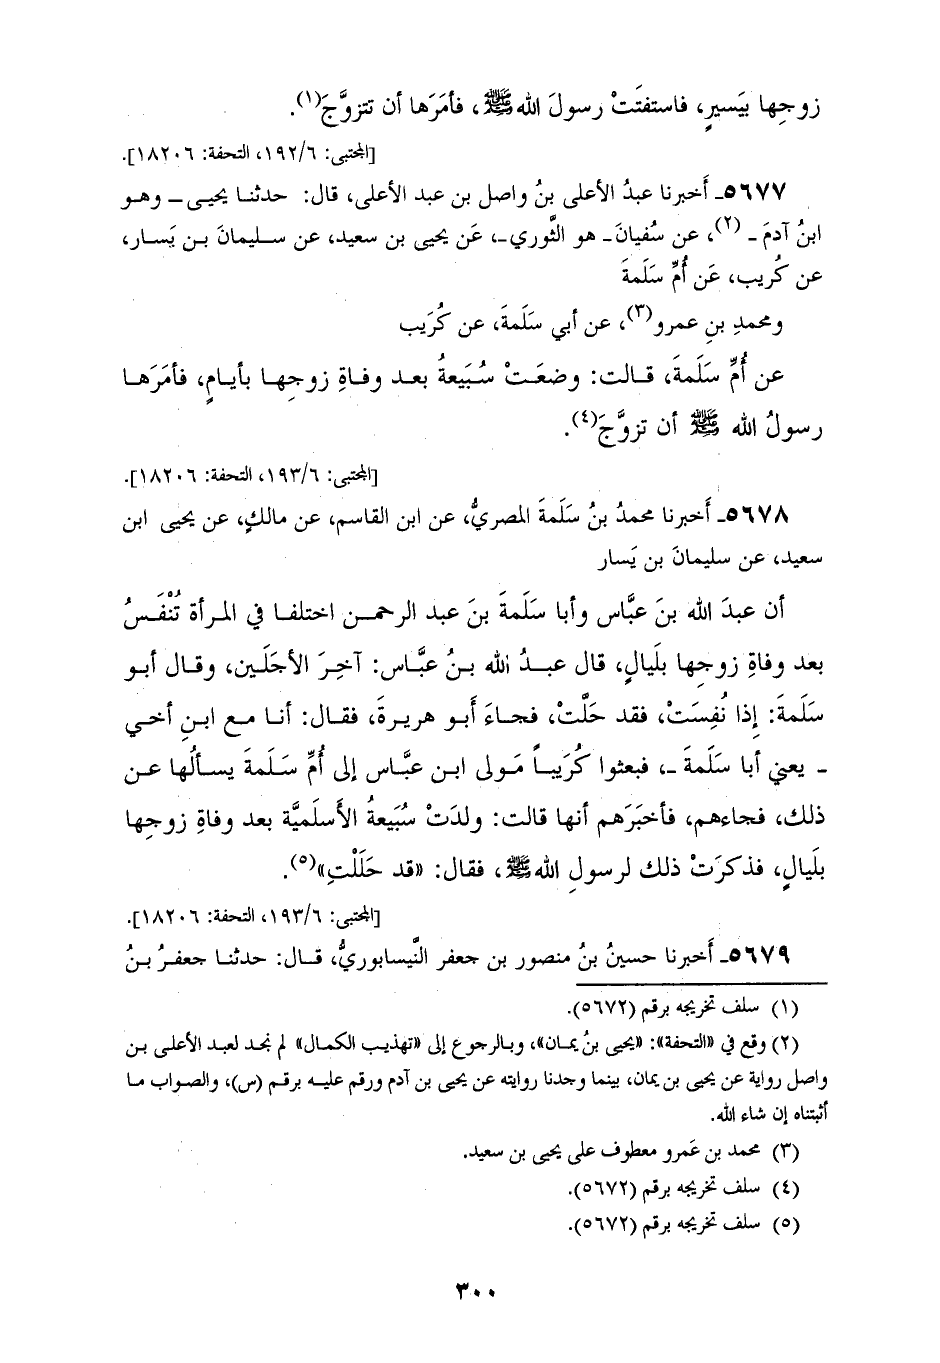 زوجِها بيَسيرٍ، فاستفتَتْ رسولَ الله ﷺ، فأمَرَها أن تتزوَّجَ(١).
[المجتبى: ١٩٢/٦، التحفة: ١٨٢٠٦].
٥٦٧٧ـ أَخبرنا عبدُ الأعلى بنُ واصل بن عبد الأعلى، قال: حدثنا يحيى ـ وهو
ابنُ آدمَ ـ(٢)، عن سُفيانَ ـ هو الثَّوري ـ، عَن يحيى بن سعيد، عن سليمانَ بن يَسار،
عن كُريب، عَن أُمِّ سَلَمةَ
ومحمدِ بنِ عمرو(٣)، عن أبي سَلَمةَ، عن كُرَيب
عن أُمِّ سَلَمةَ، قالت: وضعَتْ سُبَيعةُ بعد وفاةِ زوجِها بأيامٍ، فأمَرَها
رسولُ الله ﷺ أن تزوَّجَ(٤).
[المجتبى: ١٩٣/٦، التحفة: ١٨٢٠٦].
٥٦٧٨ـ أَخبرنا محمدُ بنُ سَلَمةَ المصريُّ، عن ابن القاسم، عن مالكٍ، عن يحيى ابن
سعيد، عن سليمانَ بن يَسار
أن عبدَ الله بنَ عبَّاس وأبا سَلَمةَ بنَ عبد الرحمن اختلفا في المرأة تُنْفَسُ
بعد وفاةِ زوجِها بلَيالٍ، قال عبدُ الله بنُ عبَّاس: آخِرَ الأجَلَين، وقال أبو
سَلَمةَ: إذا نُفِسَتْ، فقد حَلَّتْ، فجاءَ أَبو هريرةَ، فقال: أنا مع ابنِ أخي
ـ يعني أبا سَلَمةَ ـ، فبعثوا كُرَيباً مَولى ابن عبَّاس إلى أُمِّ سَلَمةَ يسألُها عن
ذلك، فجاءهم، فأخبَرَهم أنها قالت: ولدَتْ سُبَيعةُ الأسلَميَّة بعد وفاةِ زوجِها
بلَيالٍ، فذكرَتْ ذلك لرسولِ الله ﷺ، فقال: «قد حَلَلْتِ»(٥).
[المجتبى: ١٩٣/٦، التحفة: ١٨٢٠٦].
٥٦٧٩ـ أَخبرنا حسينُ بنُ منصور بن جعفر النَّيسابوريُّ، قال: حدثنا جعفرُ بنُ
(١) سلف تخريجه برقم (٥٦٧٢).
(٢) وقع في «التحفة»: «يحيى بنُ يمان»، وبالرجوع إلى «تهذيب الكمال» لم نجد لعبد الأعلى بن
واصل رواية عن يحيى بن يمان، بينما وجدنا روايته عن يحيى بن آدم ورقم عليه برقم (س)، والصواب ما
أثبتناه إن شاء الله.
(٣) محمد بن عَمرو معطوف على يحيى بن سعيد.
(٤) سلف تخريجه برقم (٥٦٧٢).
(٥) سلف تخريجه برقم (٥٦٧٢).
٣٠٠